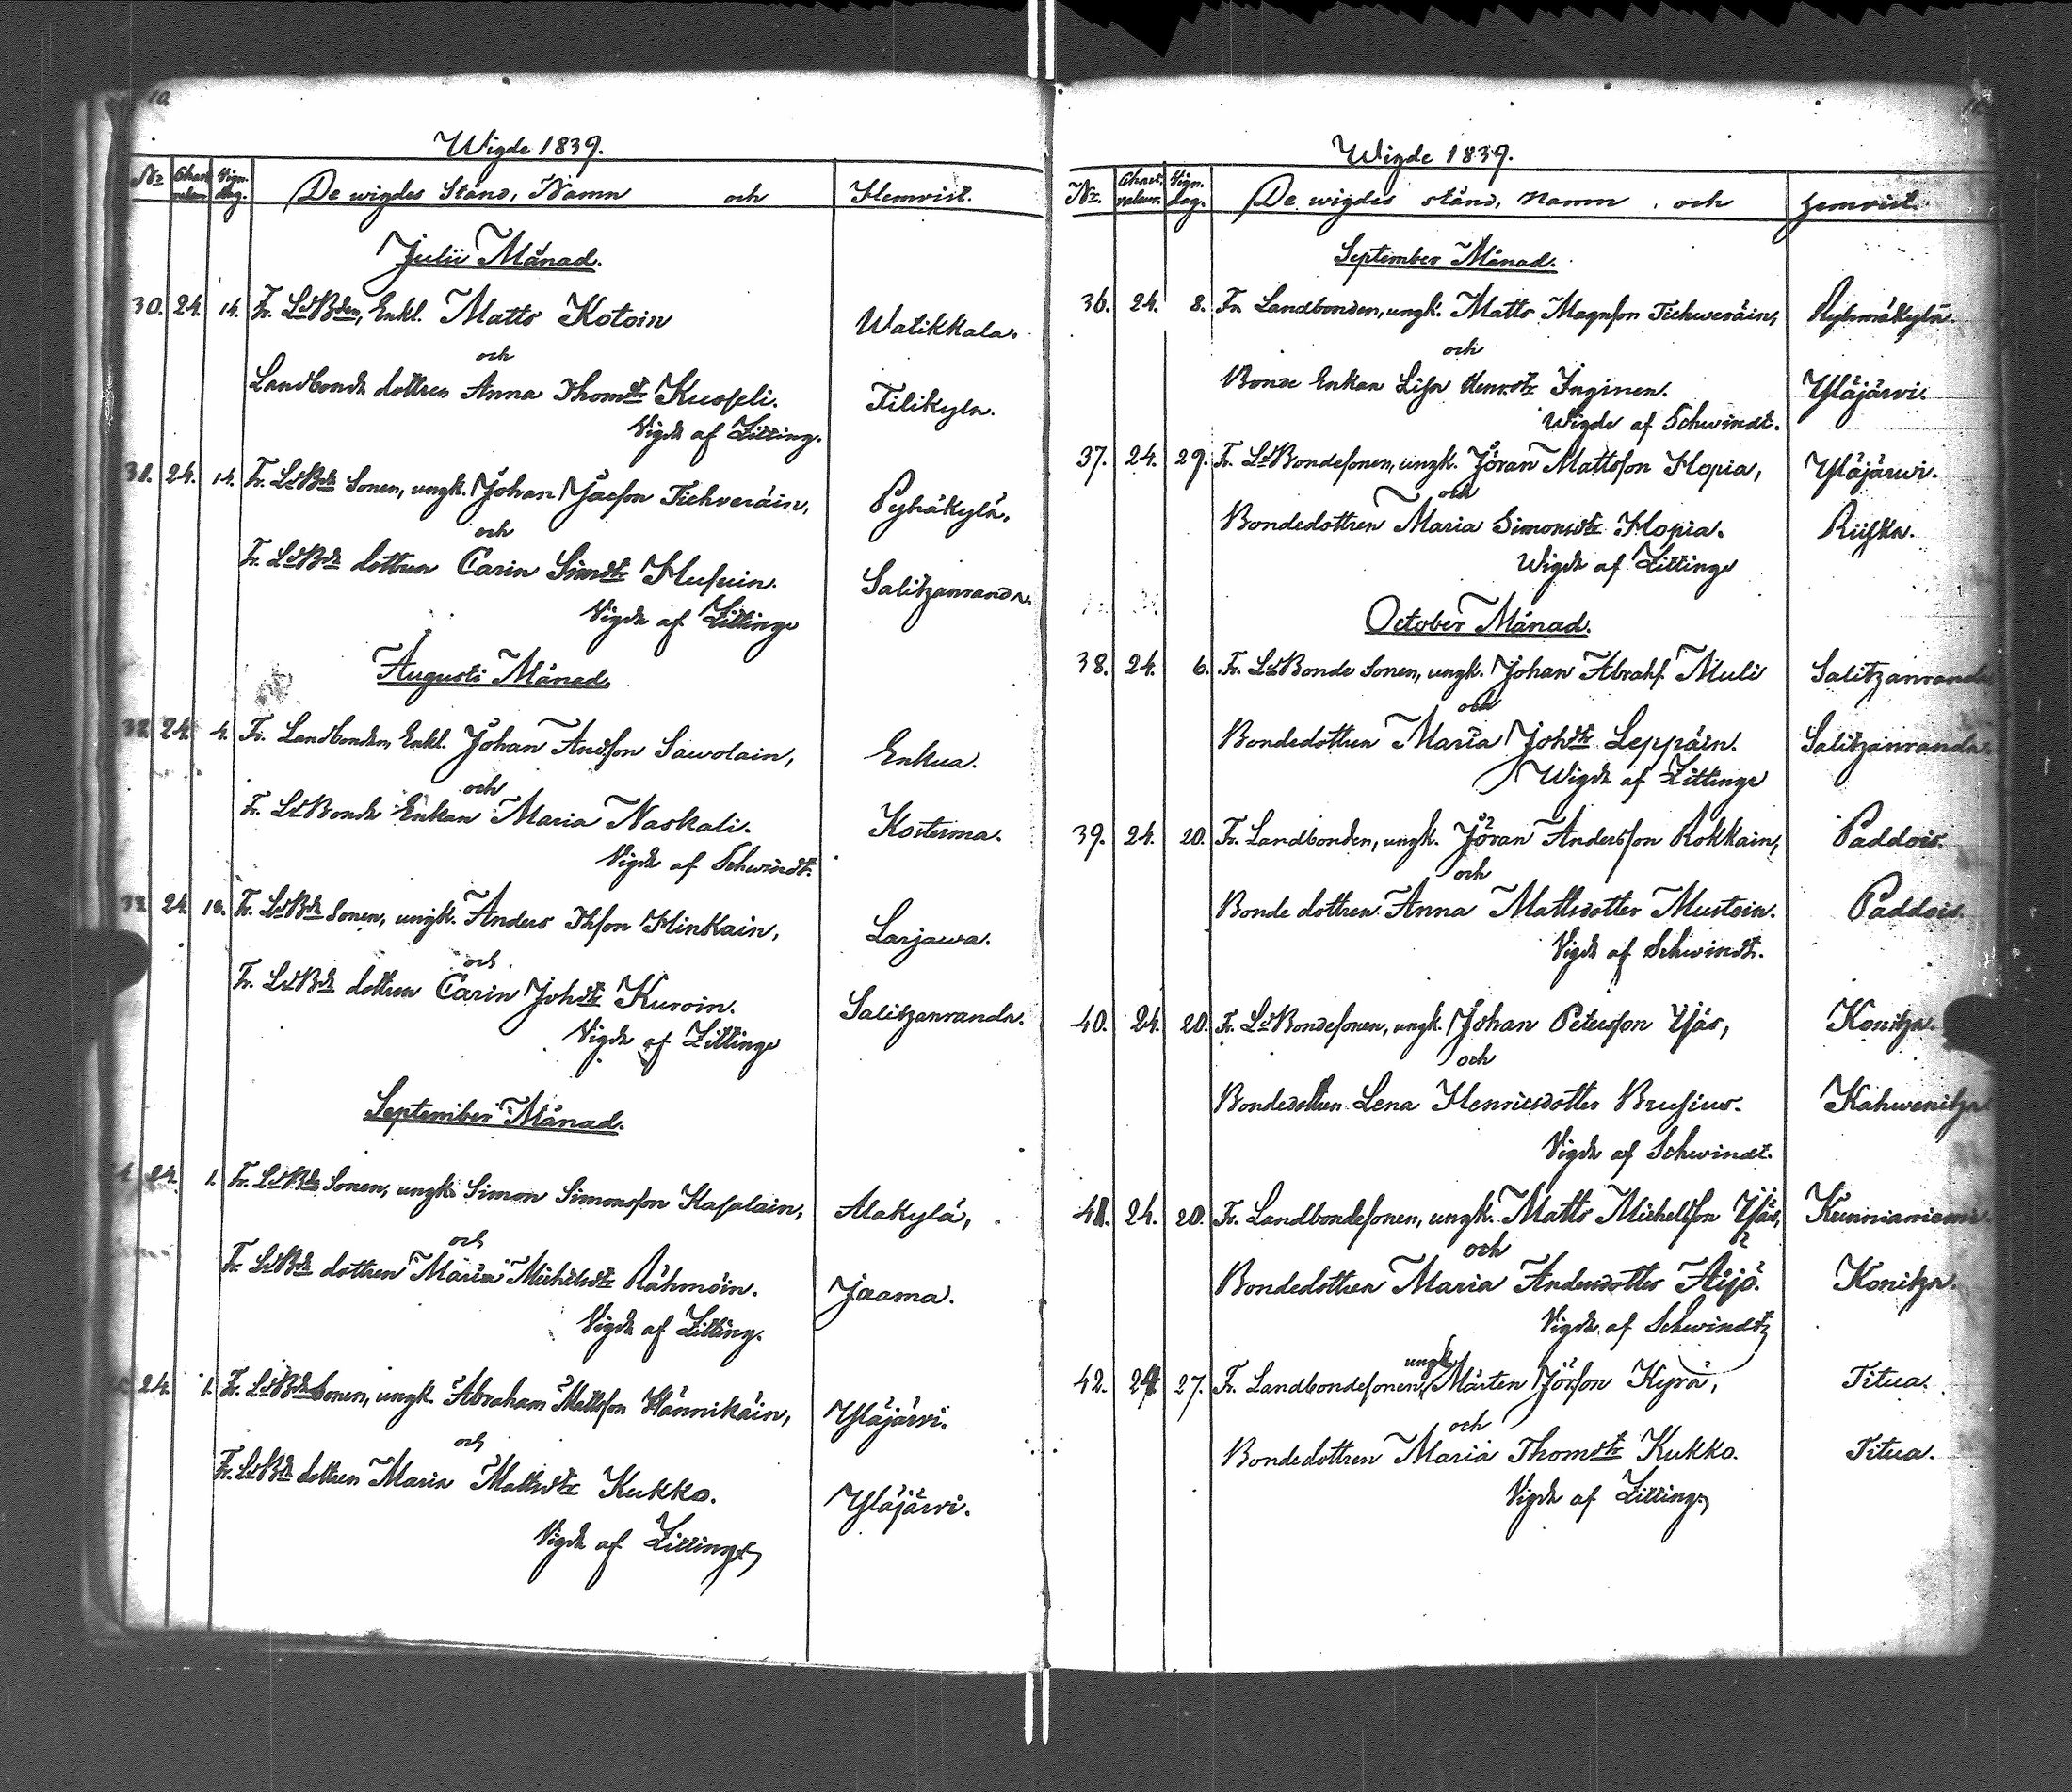 Wigde 1839.
No Chart. Vign. dag. De wigdes Stånd, Namn och Hemvist.
Julii Månad.
30. 24. 14. Fr. LdBden, Enkl. Matts Kotoin Watikkala.
och
Landbonde dottren Anna Thomdtr Kuosseli. Tilikylä.
Vigde af Zitting.
31. 24. 14. Fr. LdBde Sonen, ungk. Johan Jacson Tichveräin, Pyhäkylä.
och
Fr. LdBde dottren Carin Simdtr Husuin. Salitzanranda.
Vigde af Zitting
Augusti Månad.
32. 24. 4. Fr. Landbonden, Enkl. Johan Andsson Sawolain, Enkua.
och
Fr. LdBonde Enkan Maria Naskali. Kosterma.
Vigde af Schwindt.
24. Fr. LdBde Sonen, ungk. Anders Thson Hinkain, Larjawa.
och
Fr. LdBde dottren Carin Johdtr Kuroin. Salitzanranda.
Vigde af Zitting
September Månad.
24. 1. Fr. LdBde Sonen, ungk. Simon Simonsson Kasalain, Alakylä,
och
Fr. LdBde dottren Maria Michelsdtr Rähmöin. Jaama.
Vigde af Zitting.
24. 1. Fr. LdBde Sonen, ungk. Abraham Mattsson Hännikäin, Yläjärvi.
och
Fr. LdBde dottren Maria Mattsdtr Kukko. Yläjärvi.
Vigde af Zitting
Wigde 1839.
No. Chart. Vign. dag. De wigdes stånd, Namn och hemvist.
September Månad.
36. 24. 8. Fr. Landbonden, ungk. Matts Magnsson Tichweräin, Ryhmäkylä.
och
Bonde Enkan Lisa Henrsdtr Inginen. Yläjärvi.
Wigde af Schwindt.
37. 24. 29. Fr. LdBondesonen, ungk. Jöran Mattsson Hopia, Yläjärwi.
och
Bondedottren Maria Simonsdtr Hopia. Riiska.
Wigde af Zitting
October Månad.
38. 24. 6. Fr. LdBonde Sonen, ungk. Johan Abrahs. Muli Salitzanranda
och
Bondedottren Maria Johdtr Leppäin. Salitzanranda.
Wigde af Zitting
39. 24. 20. Fr. Landbonden, ungk. Jöran Andersson Rokkain, Paddois.
och
Bonde dottren Anna Mattsdotter Mustoin. Paddois.
Vigde af Schwindt.
40. 24. 20. Fr. LdBondesonen, ungk. Johan Petersson Yjäs, Konitza.
och
Bondedottren Lena Henricsdotter Brusius. Kahwenitza
Vigde af Schwindt.
41. 24. 20. Fr. Landbondesonen, ungk. Matts Michelsson Yjäs, Kunnianiemi.
och
Bondedottren Maria Andersdotter Äijö. Konitza.
Vigde af Schwindt
42. 24. 27. Fr. Landbondesonen, ungk. Mårten Jörsson Kyrä, Titua.
och
Bondedottren Maria Thomdtr Kukko. Titua.
Vigde af Zitting